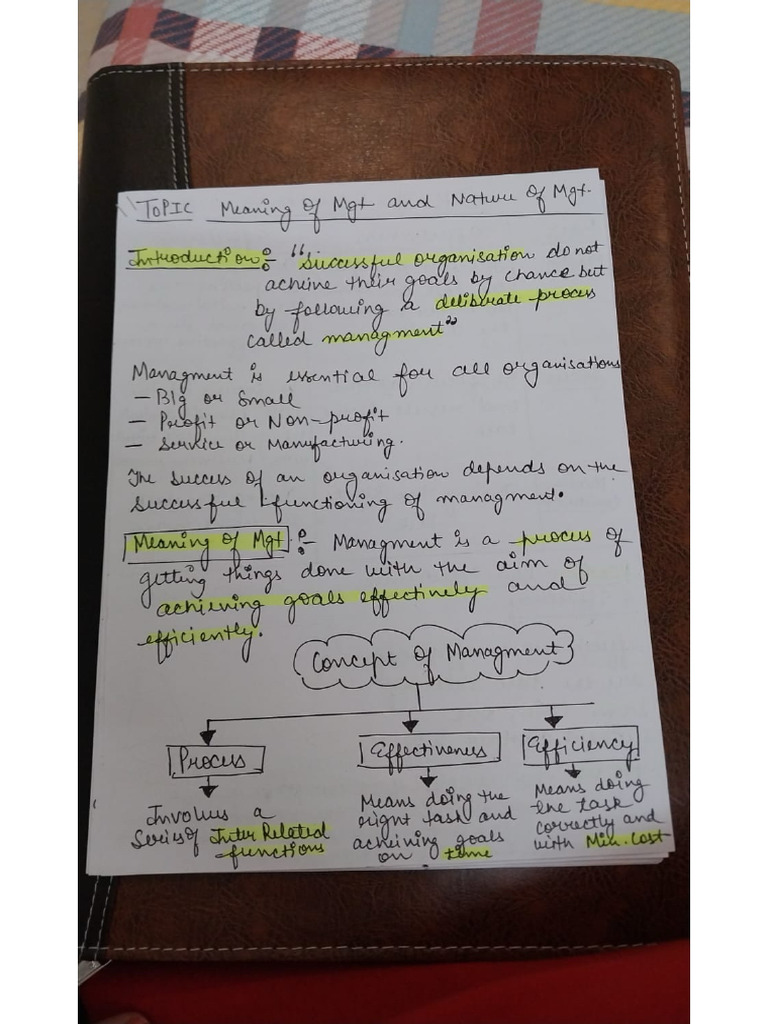 TOPIC Meaning of Mgt and Nature of Mgt.
Introduction :- "Successful organisation do not
achieve their goals by chance but
by following a deliberate process
called managment"
Managment is essential for all organisations
- Big or Small
- Profit or Non-profit
- Service or Manufacturing.
The success of an organisation depends on the
successful functioning of managment.
Meaning of Mgt :- Managment is a process of
getting things done with the aim of
achieving goals effectively and
efficiently.
Concept of Managment
Process Effectiveness Efficiency
Involves a
series of Inter Related
functions
Means doing the
right task and
achieving goals
on time
Means doing
the task
correctly and
with Min. cost